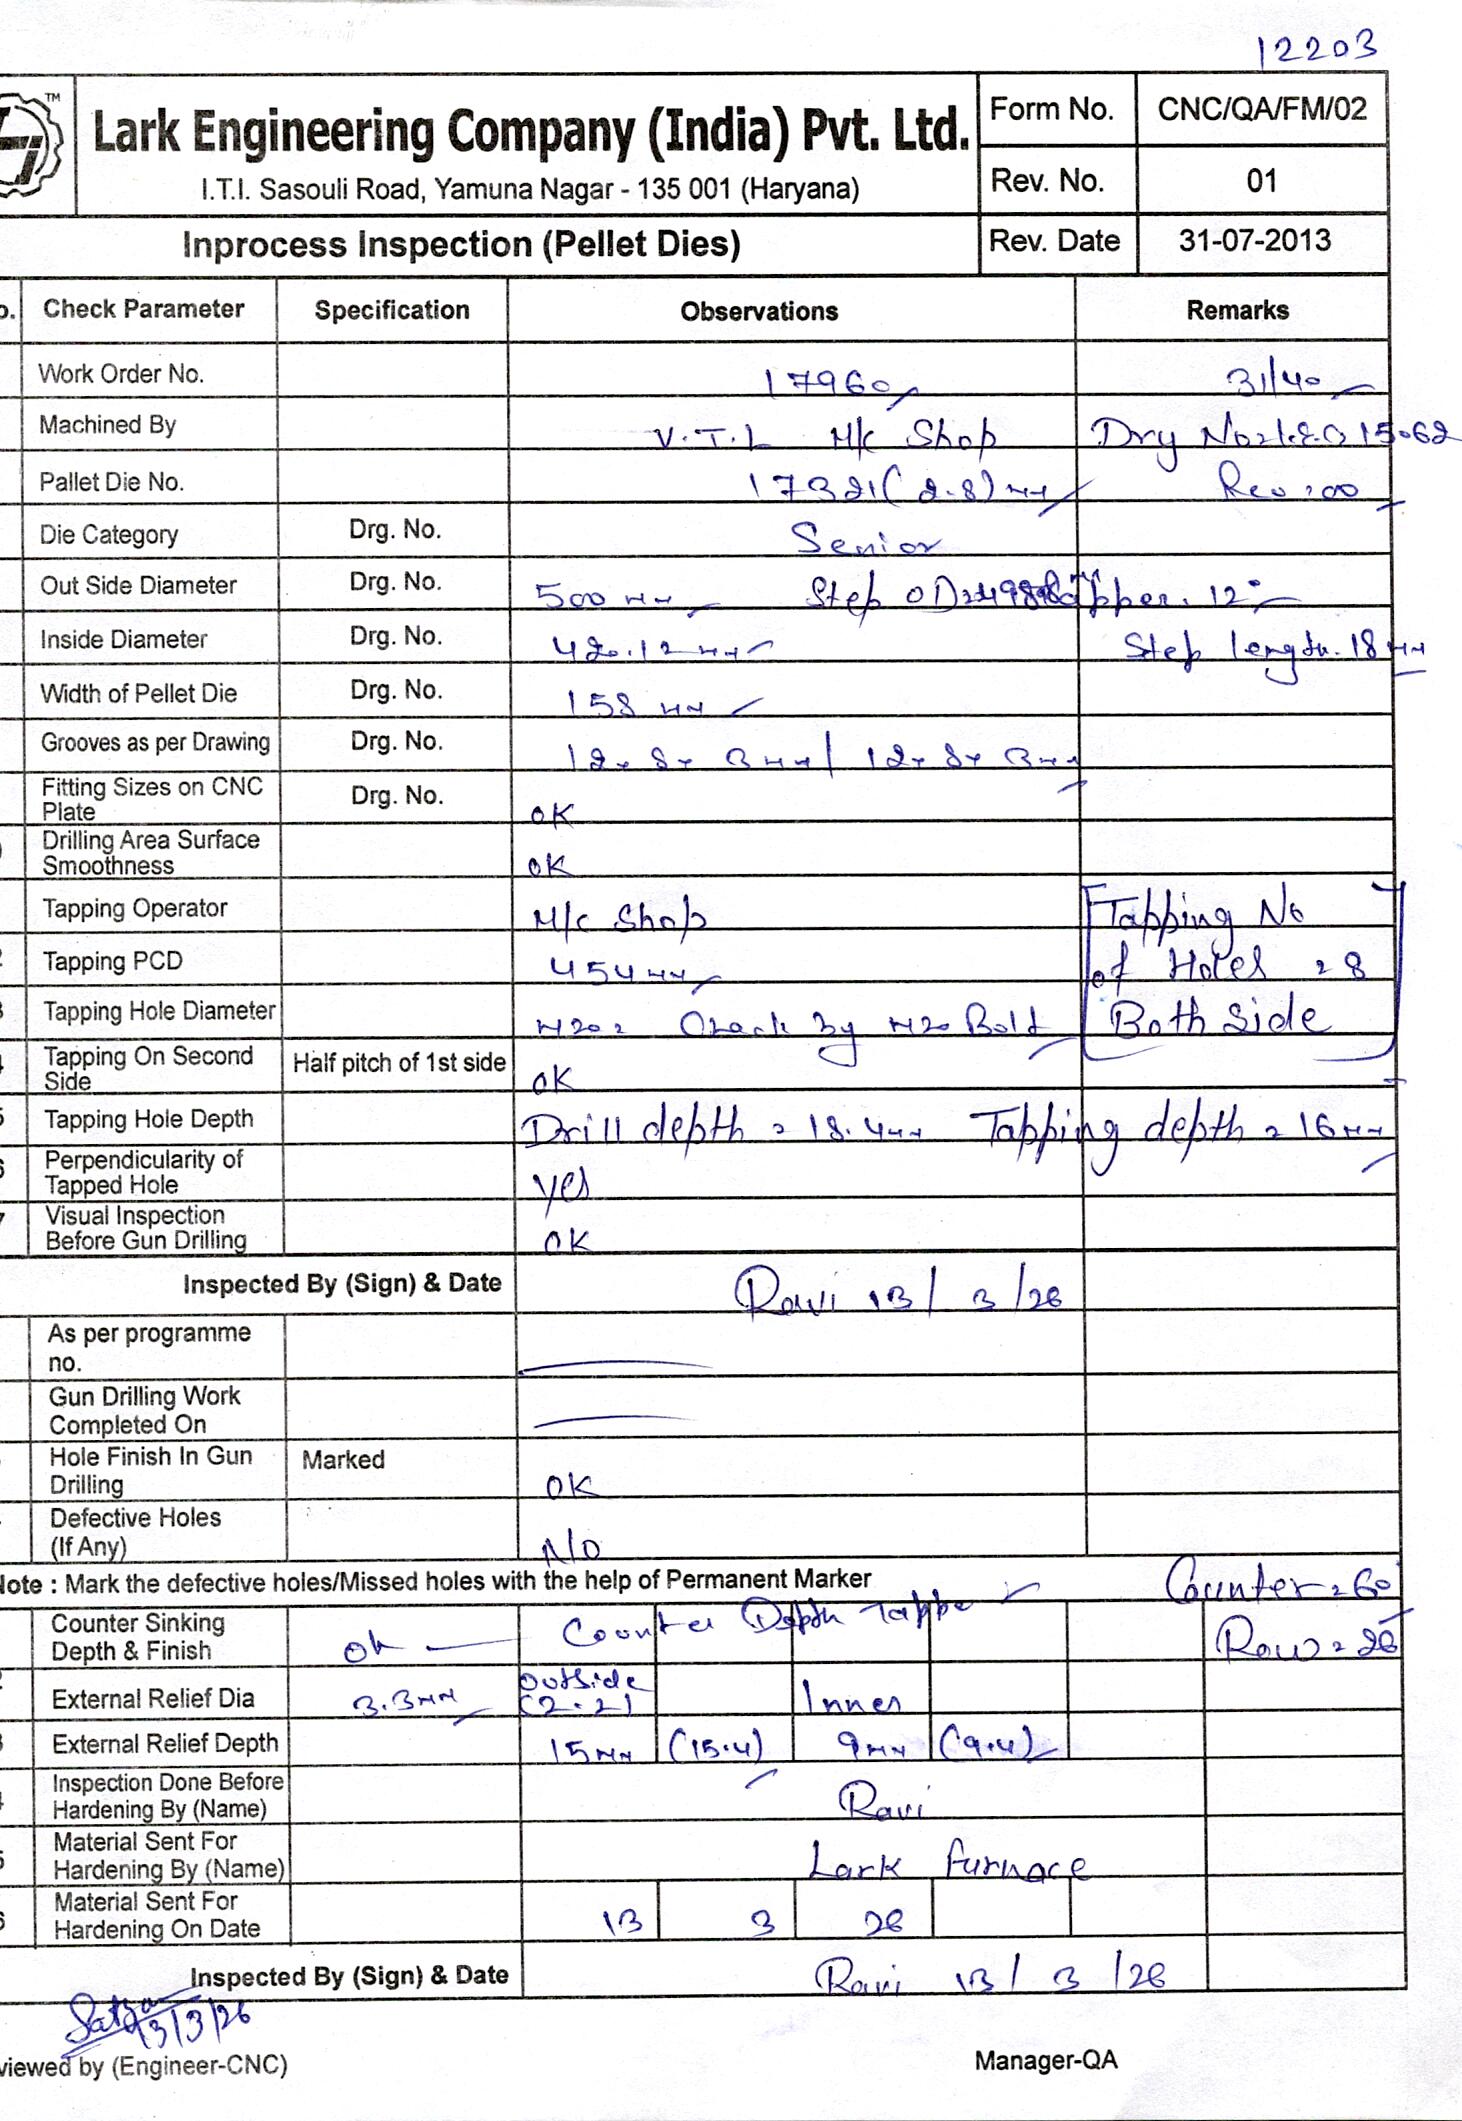 12203
TM
Lark Engineering Company (India) Pvt. Ltd.
I.T.I. Sasouli Road, Yamuna Nagar - 135 001 (Haryana)
Form No. CNC/QA/FM/02
Rev. No. 01
Inprocess Inspection (Pellet Dies) Rev. Date 31-07-2013
Check Parameter Specification Observations Remarks
Work Order No. 17960 31/40
Machined By V.T.L M/c Shop Dry No 15.62
Pallet Die No. 17321 (2.8) mm Rev : 00
Die Category Drg. No. Senior
Out Side Diameter Drg. No. 500 mm Step OD 12°
Inside Diameter Drg. No. 420.12 mm Step length. 18 mm
Width of Pellet Die Drg. No. 158 mm
Grooves as per Drawing Drg. No. 12x 8x 3mm / 12x 8x 3mm
Fitting Sizes on CNC Plate Drg. No. OK
Drilling Area Surface Smoothness OK
Tapping Operator M/c Shop Tapping No
Tapping PCD 454 mm of Holes = 8
Tapping Hole Diameter M20 = Check By M20 Bolt Both Side
Tapping On Second Side Half pitch of 1st side OK
Tapping Hole Depth Drill depth = 18.4mm Tapping depth = 16mm
Perpendicularity of Tapped Hole yes
Visual Inspection Before Gun Drilling OK
Inspected By (Sign) & Date Ravi 13/3/26
As per programme no.
Gun Drilling Work Completed On
Hole Finish In Gun Drilling Marked OK
Defective Holes (If Any) N/o
Note : Mark the defective holes/Missed holes with the help of Permanent Marker Counter = 60
Counter Sinking Depth & Finish ok Counter Depth Tappe Row = 26
External Relief Dia 3.3mm outside (2.2) Inner
External Relief Depth 15mm (15.4) 9mm (9.4)
Inspection Done Before Hardening By (Name) Ravi
Material Sent For Hardening By (Name) Lark furnace
Material Sent For Hardening On Date 13 3 26
Inspected By (Sign) & Date Ravi 13/3/26
13/3/26
viewed by (Engineer-CNC) Manager-QA